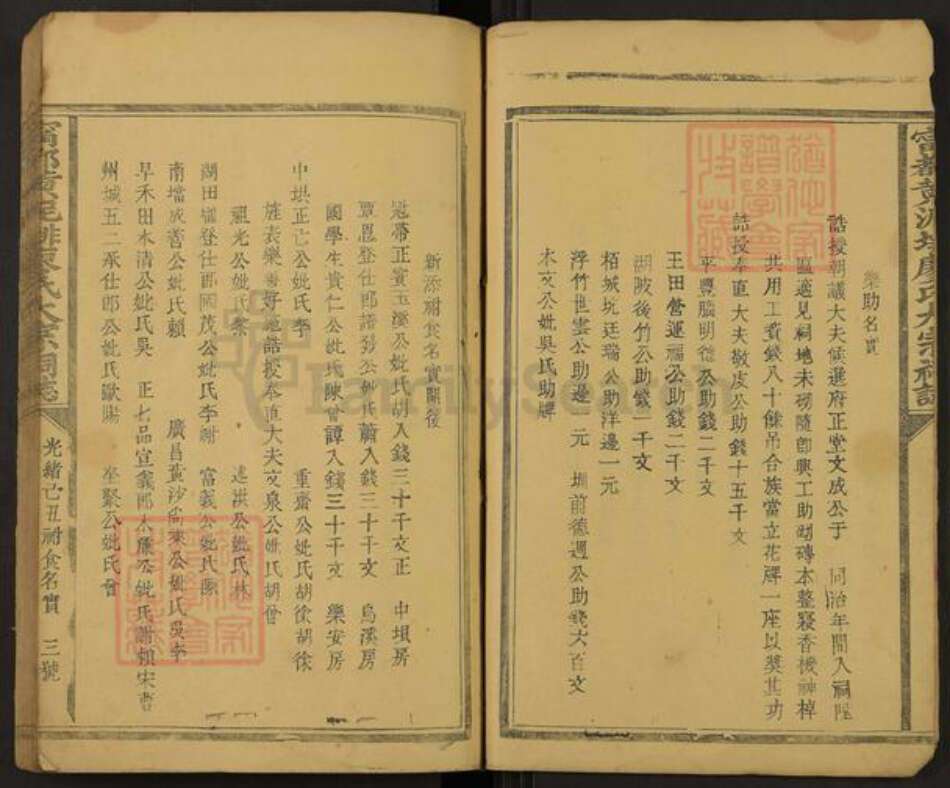 樂助名實
誥授朝議大夫候選府正堂文成公于 同治年間入祠陞
區適見祠地未砌隨卽興工助砌磚本整寢香機神棹
共用工資錢八十餘吊合族當立花牌一座以獎其功
誥授奉直大夫敬皮公助錢十五千文
平豐腦明德公助錢二千文
王田營運福公助錢二千文
湖陂後竹公助錢一千文
栢城坑廷瑞公助洋邊一元
浮竹世雲公助邊一元 圳前德週公助錢六百文
木文公妣吳氏助牌
新添祔食名實開後
冠帶正賓玉溪公妣氏胡入錢三十千文正 中埧房
覃恩登仕郎語彭公妣氏蕭入錢三十千文 烏溪房
國學生貴仁公妣氏陳曾譚入錢三十千文 樂安房
中垬正亡公妣氏李 重齋公妣氏胡徐胡徐
旌表樂善好施誥授奉直大夫文泉公妣氏胡曾
祖光公妣氏黎 述洪公妣氏林
湖田宿登仕郎國茂公妣氏李謝 富義公妣氏陳
南壋成菩公妣氏賴 廣昌蓋沙尚東公妣氏吳李
早禾田木清公妣氏吳 正七品宣義郎太原公妣氏謝賴宋曹
州城五二承仕郎公妣氏歐陽 坐緊公妣氏曾
光緒己丑祔食名實 三號
FamilySearch